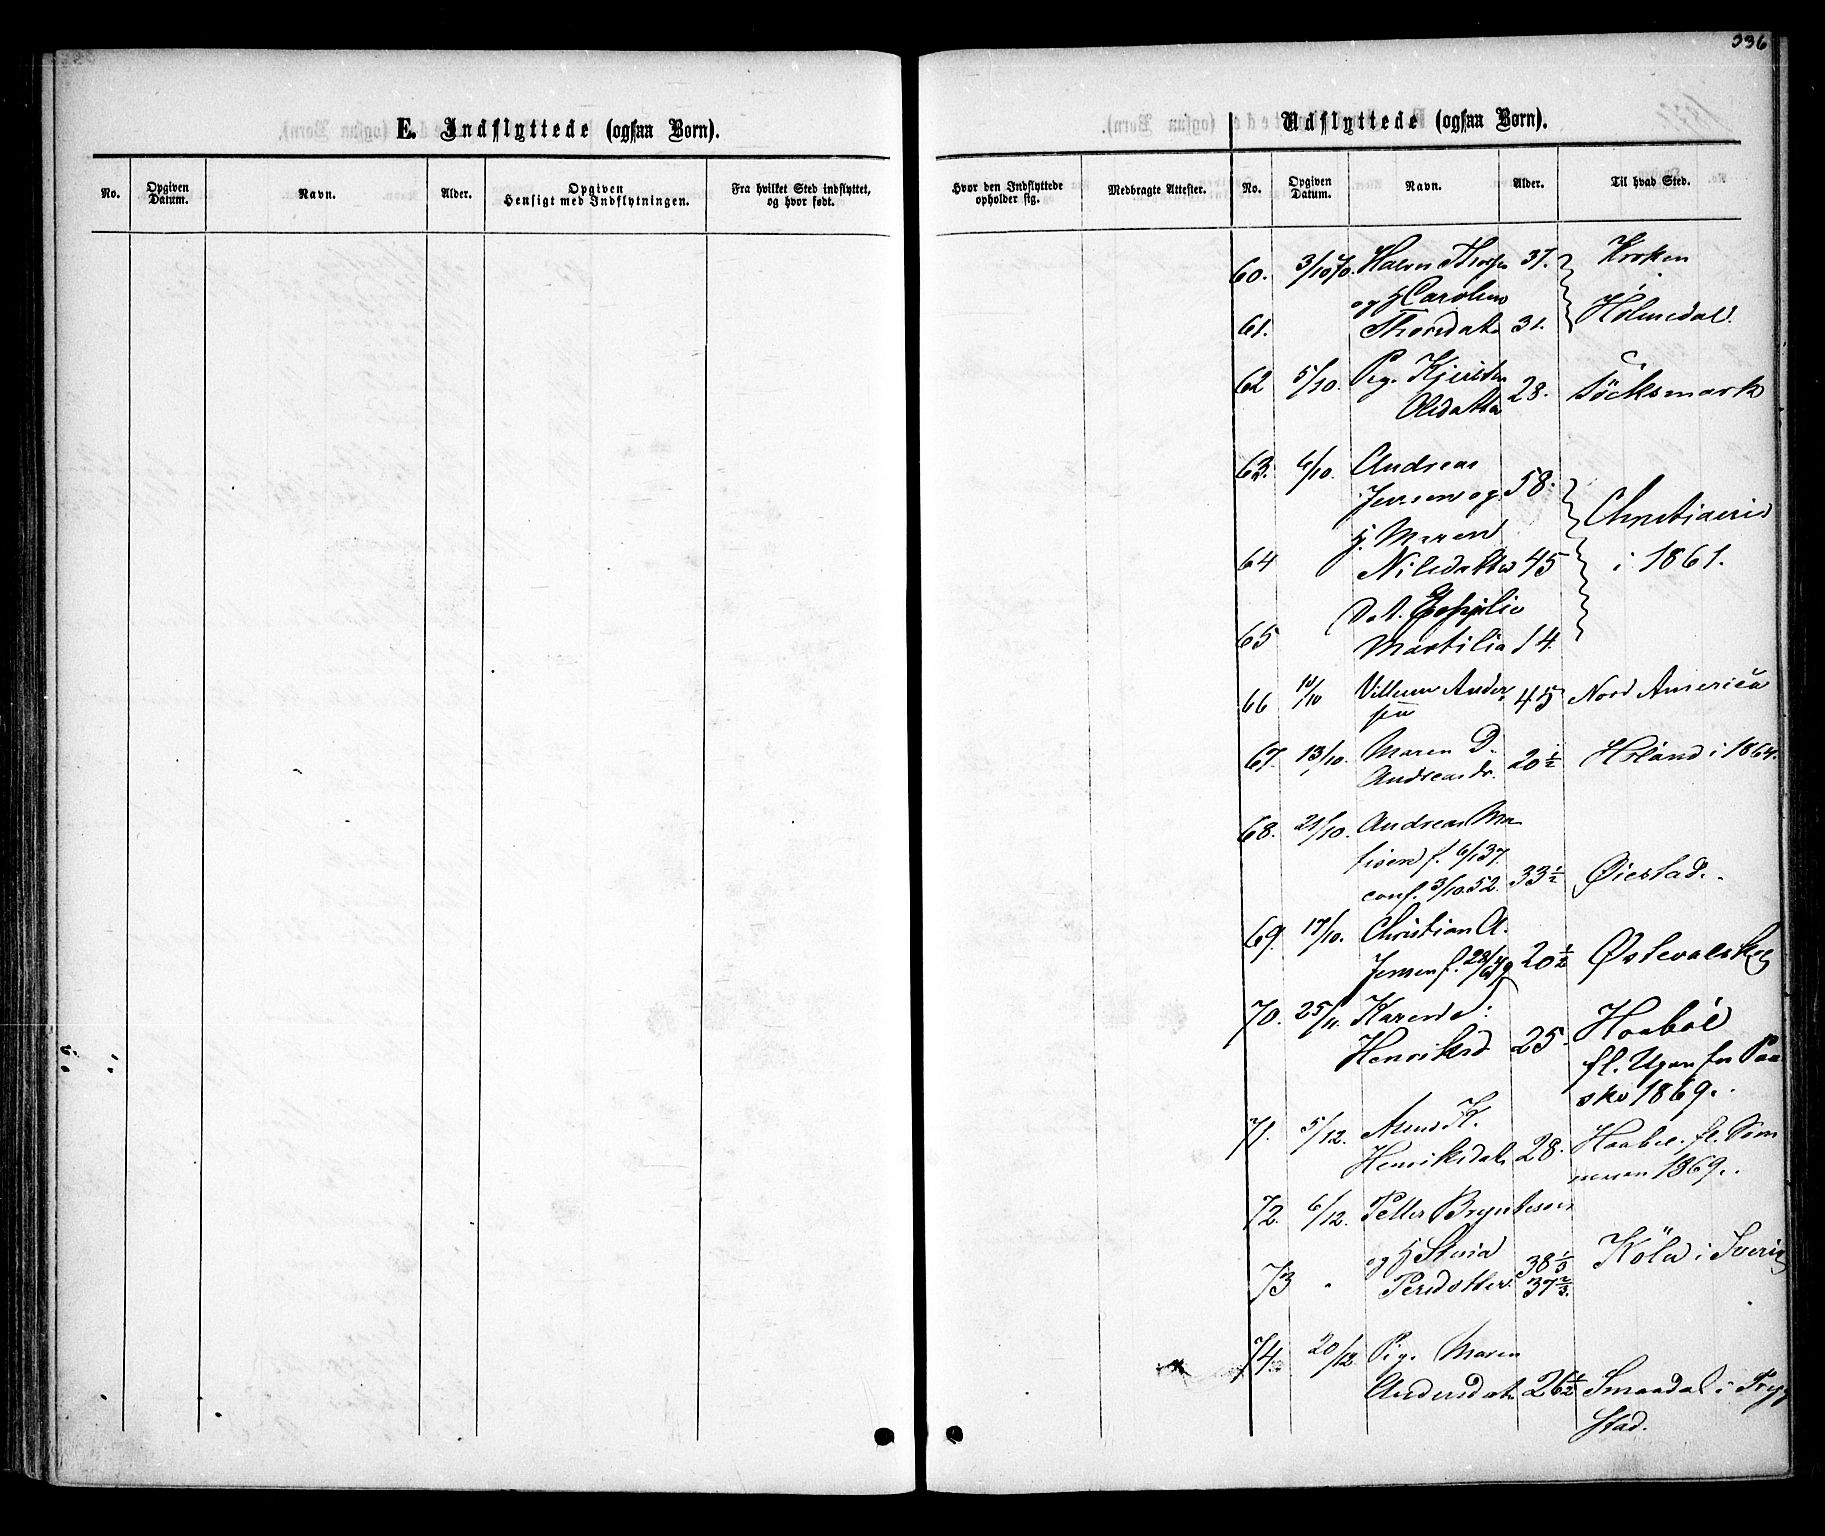 336
E. Indflyttede (ogsaa Børn).
No.
Opgiven Datum.
Navn.
Alder.
Opgiven Hensigt med Indflytningen.
Fra hvilket Sted indflyttet, og hvor født.
Hvor den Indflyttede opholder sig.
Medbragte Attester.
Udflyttede (ogsaa Børn).
No.
Opgiven Datum.
Navn.
Alder.
Til hvad Sted.
60. 3/10 70. Halvor 37. Kroken
og H Caroline
61. Thorsdat. 31. Holmedal.
62 5/10. Pig. Kjersten
Olsdatter 28. Töcksmark
63. 6/10. Andreas
Jensen og 58.
H. Maren Christiania
64 Nilsdatter 45 i 1861.
Dat.
65 Martilia 14.
66 10/10 Villum Ander
sen 45 Nord America
67. 13/10. Maren D.
Andreasdr. 20 1/2 Höland i 1864.
68. 21/10. Andreas Ma
tisen f. 6/1 37.
conf. 3/10 52. 33 1/2 Øiestad.
69. 17/10. Christian A.
Jensen f. 20 1/2 Østevalskog
70. 25/11. Karen
Henriksd 25. Haabøl
fl. Ugen før Paa
ske 1869.
71. 5/12. K.
Henriksdat. 28. Haabøl. fl. Som
meren 1869.
72. 6/12. Petter Bryntesen
og H Stina 38 1/3 Köla i Sverig
73 " Persdotter 37 2/3.
74. 20/12 Pig. Maren
Andersdat. 26 1/2 Smaadal i Tryg
stad.